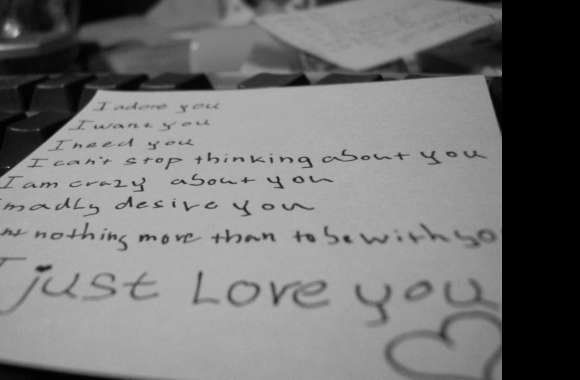 I adore you
I want you
I need you
I can't stop thinking about you
I am crazy about you
madly desire you
nothing more than to be with yo
I just Love you